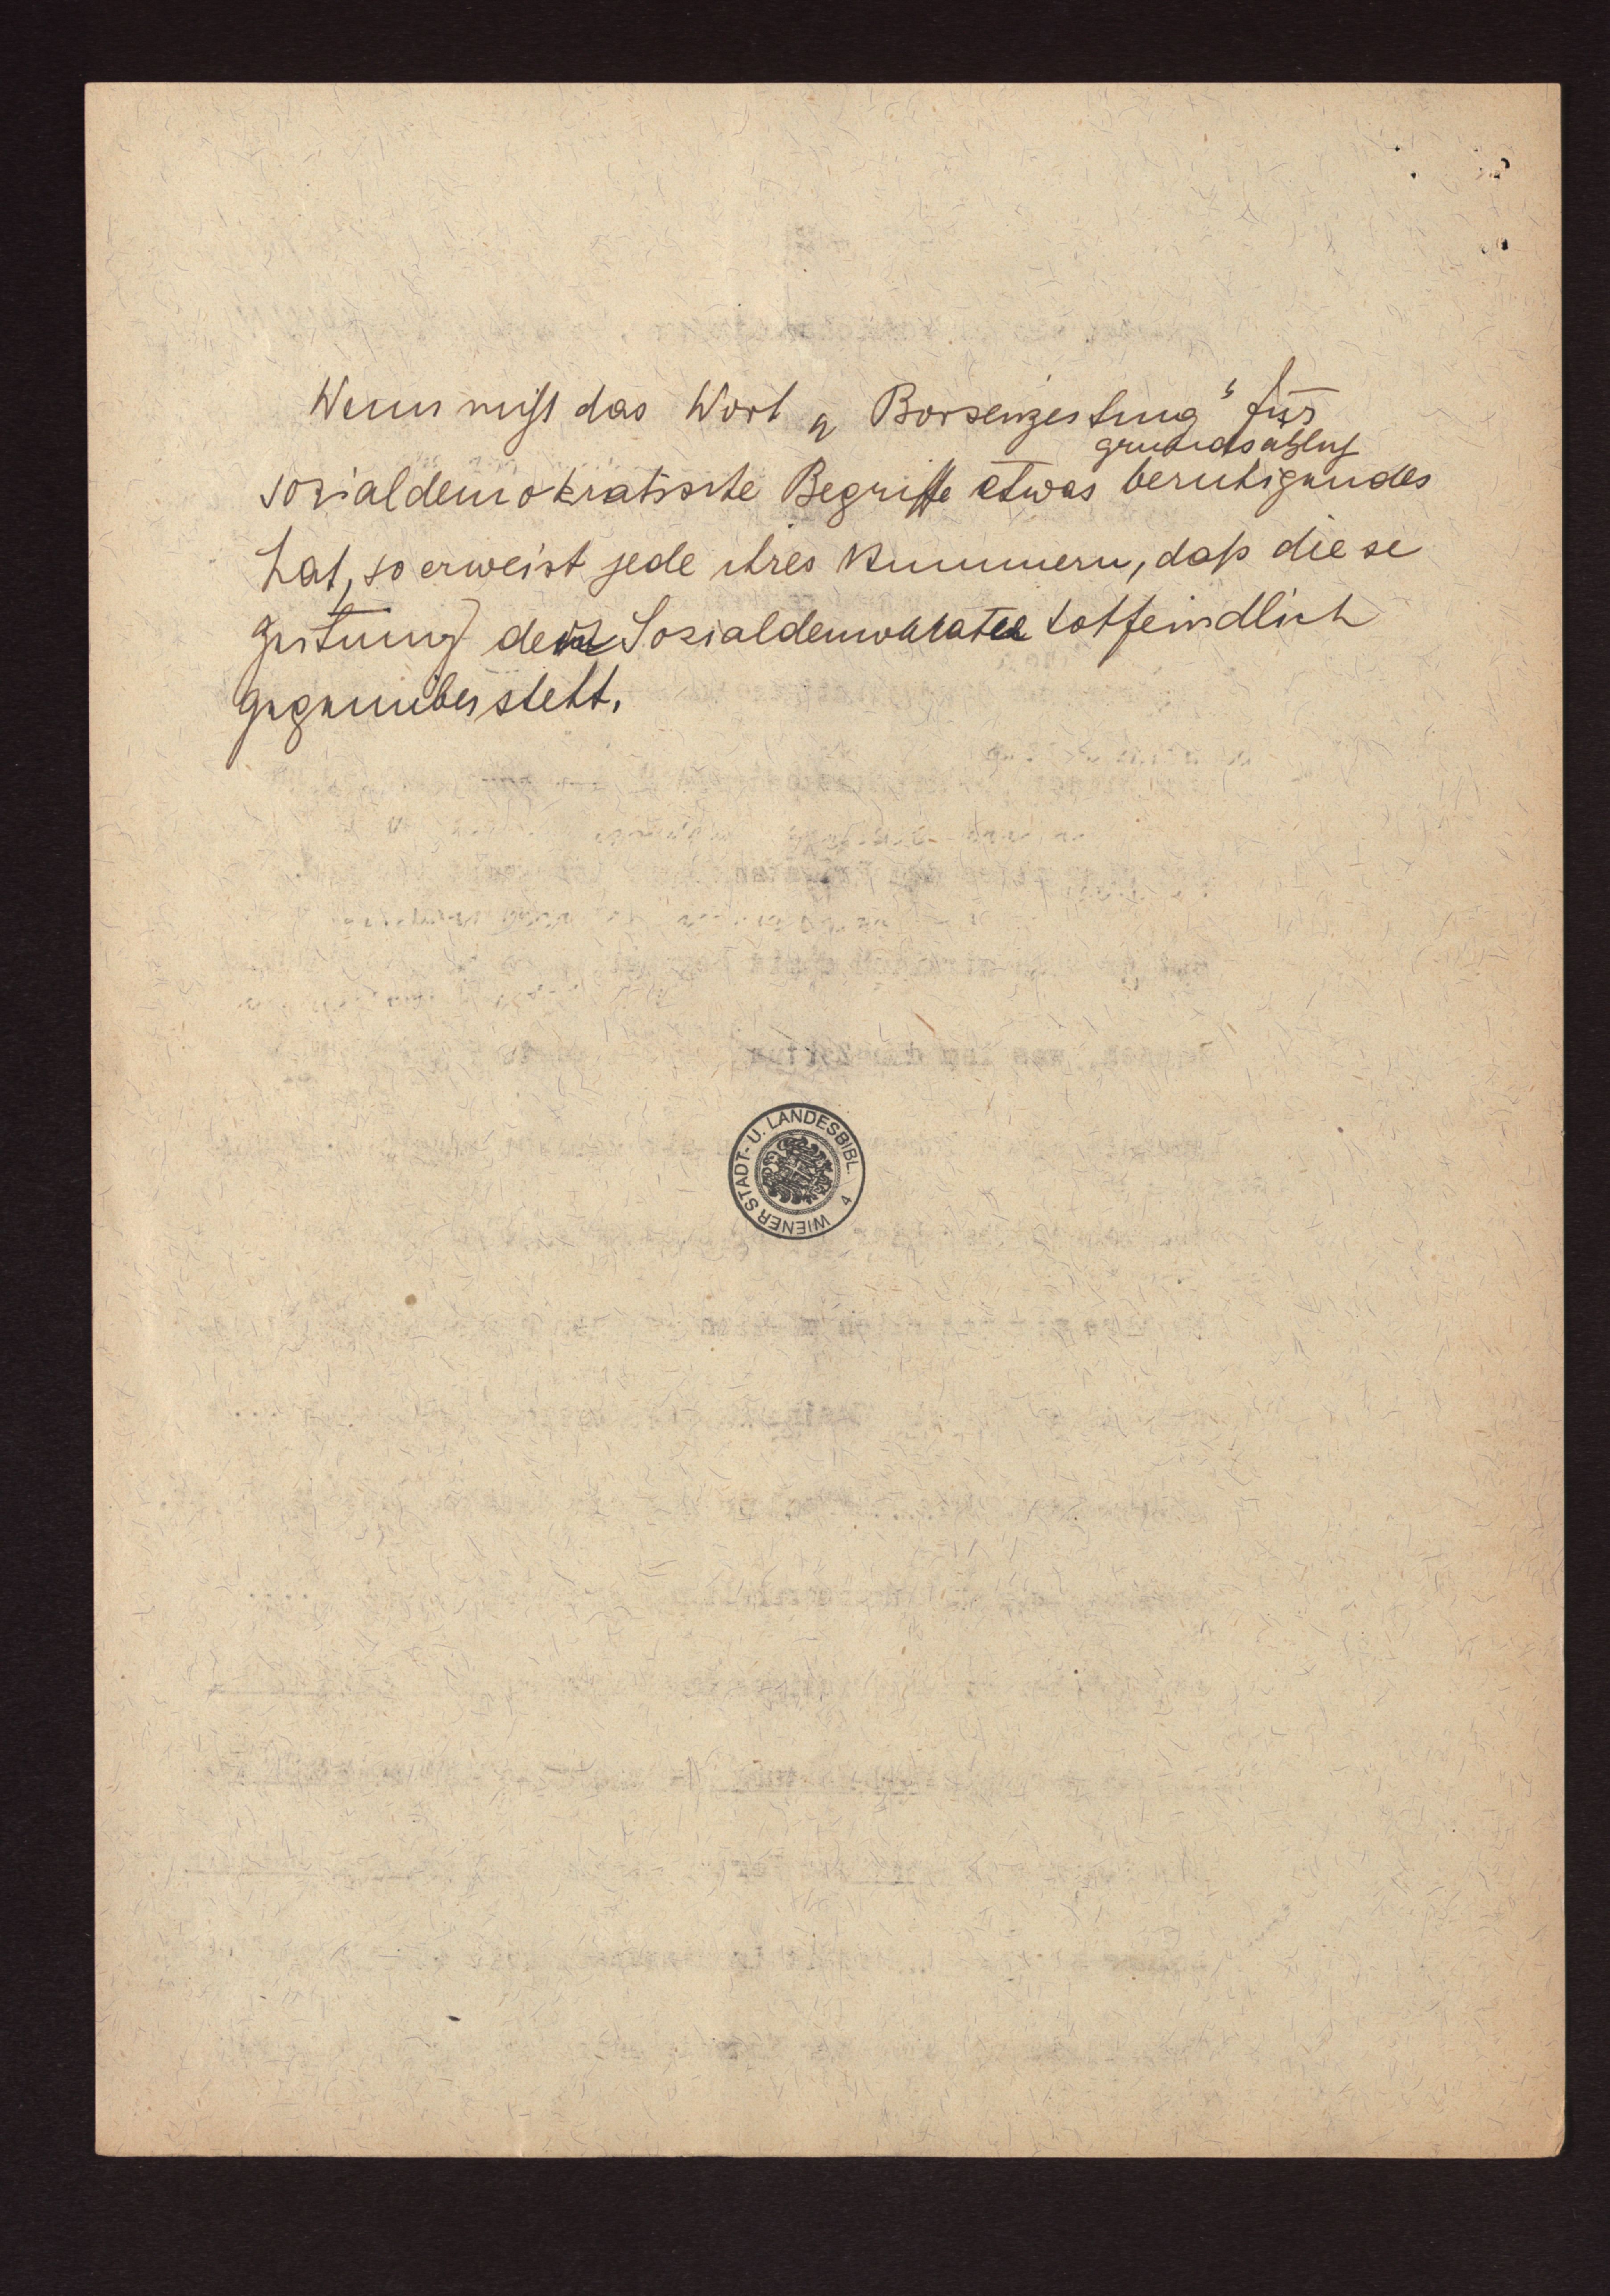 Wenn nicht das Wort „Börsenzeitung“ für
grundsätzlich
sozialdemokratische Begriffe etwas beruhigendes
hat, so erweist jede ihres Nummern, daß diese
Zeitung der Sozialdemokratie totfeindlich
gegenübersteht.
WIENER STADT- U. LANDESBIBL. 4